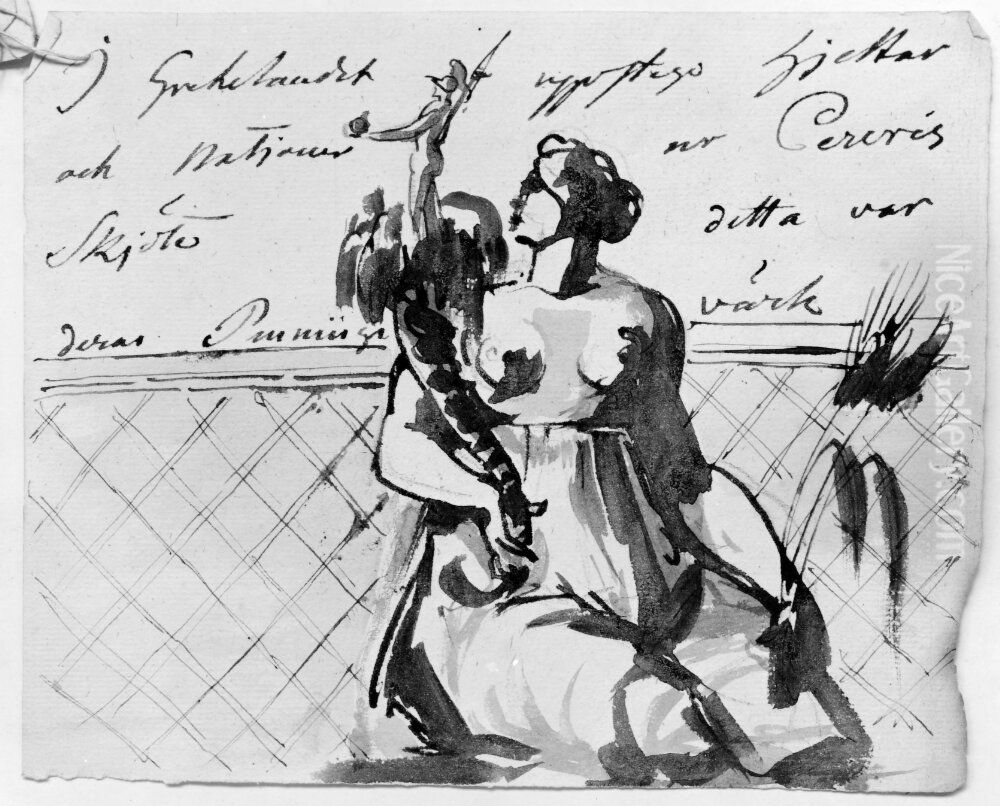 J Grekelandet uppstego Hjeltar
och Natjoner ur Cereris
Skjöte detta var
deras Penninge värk
NiceArtGallery.com